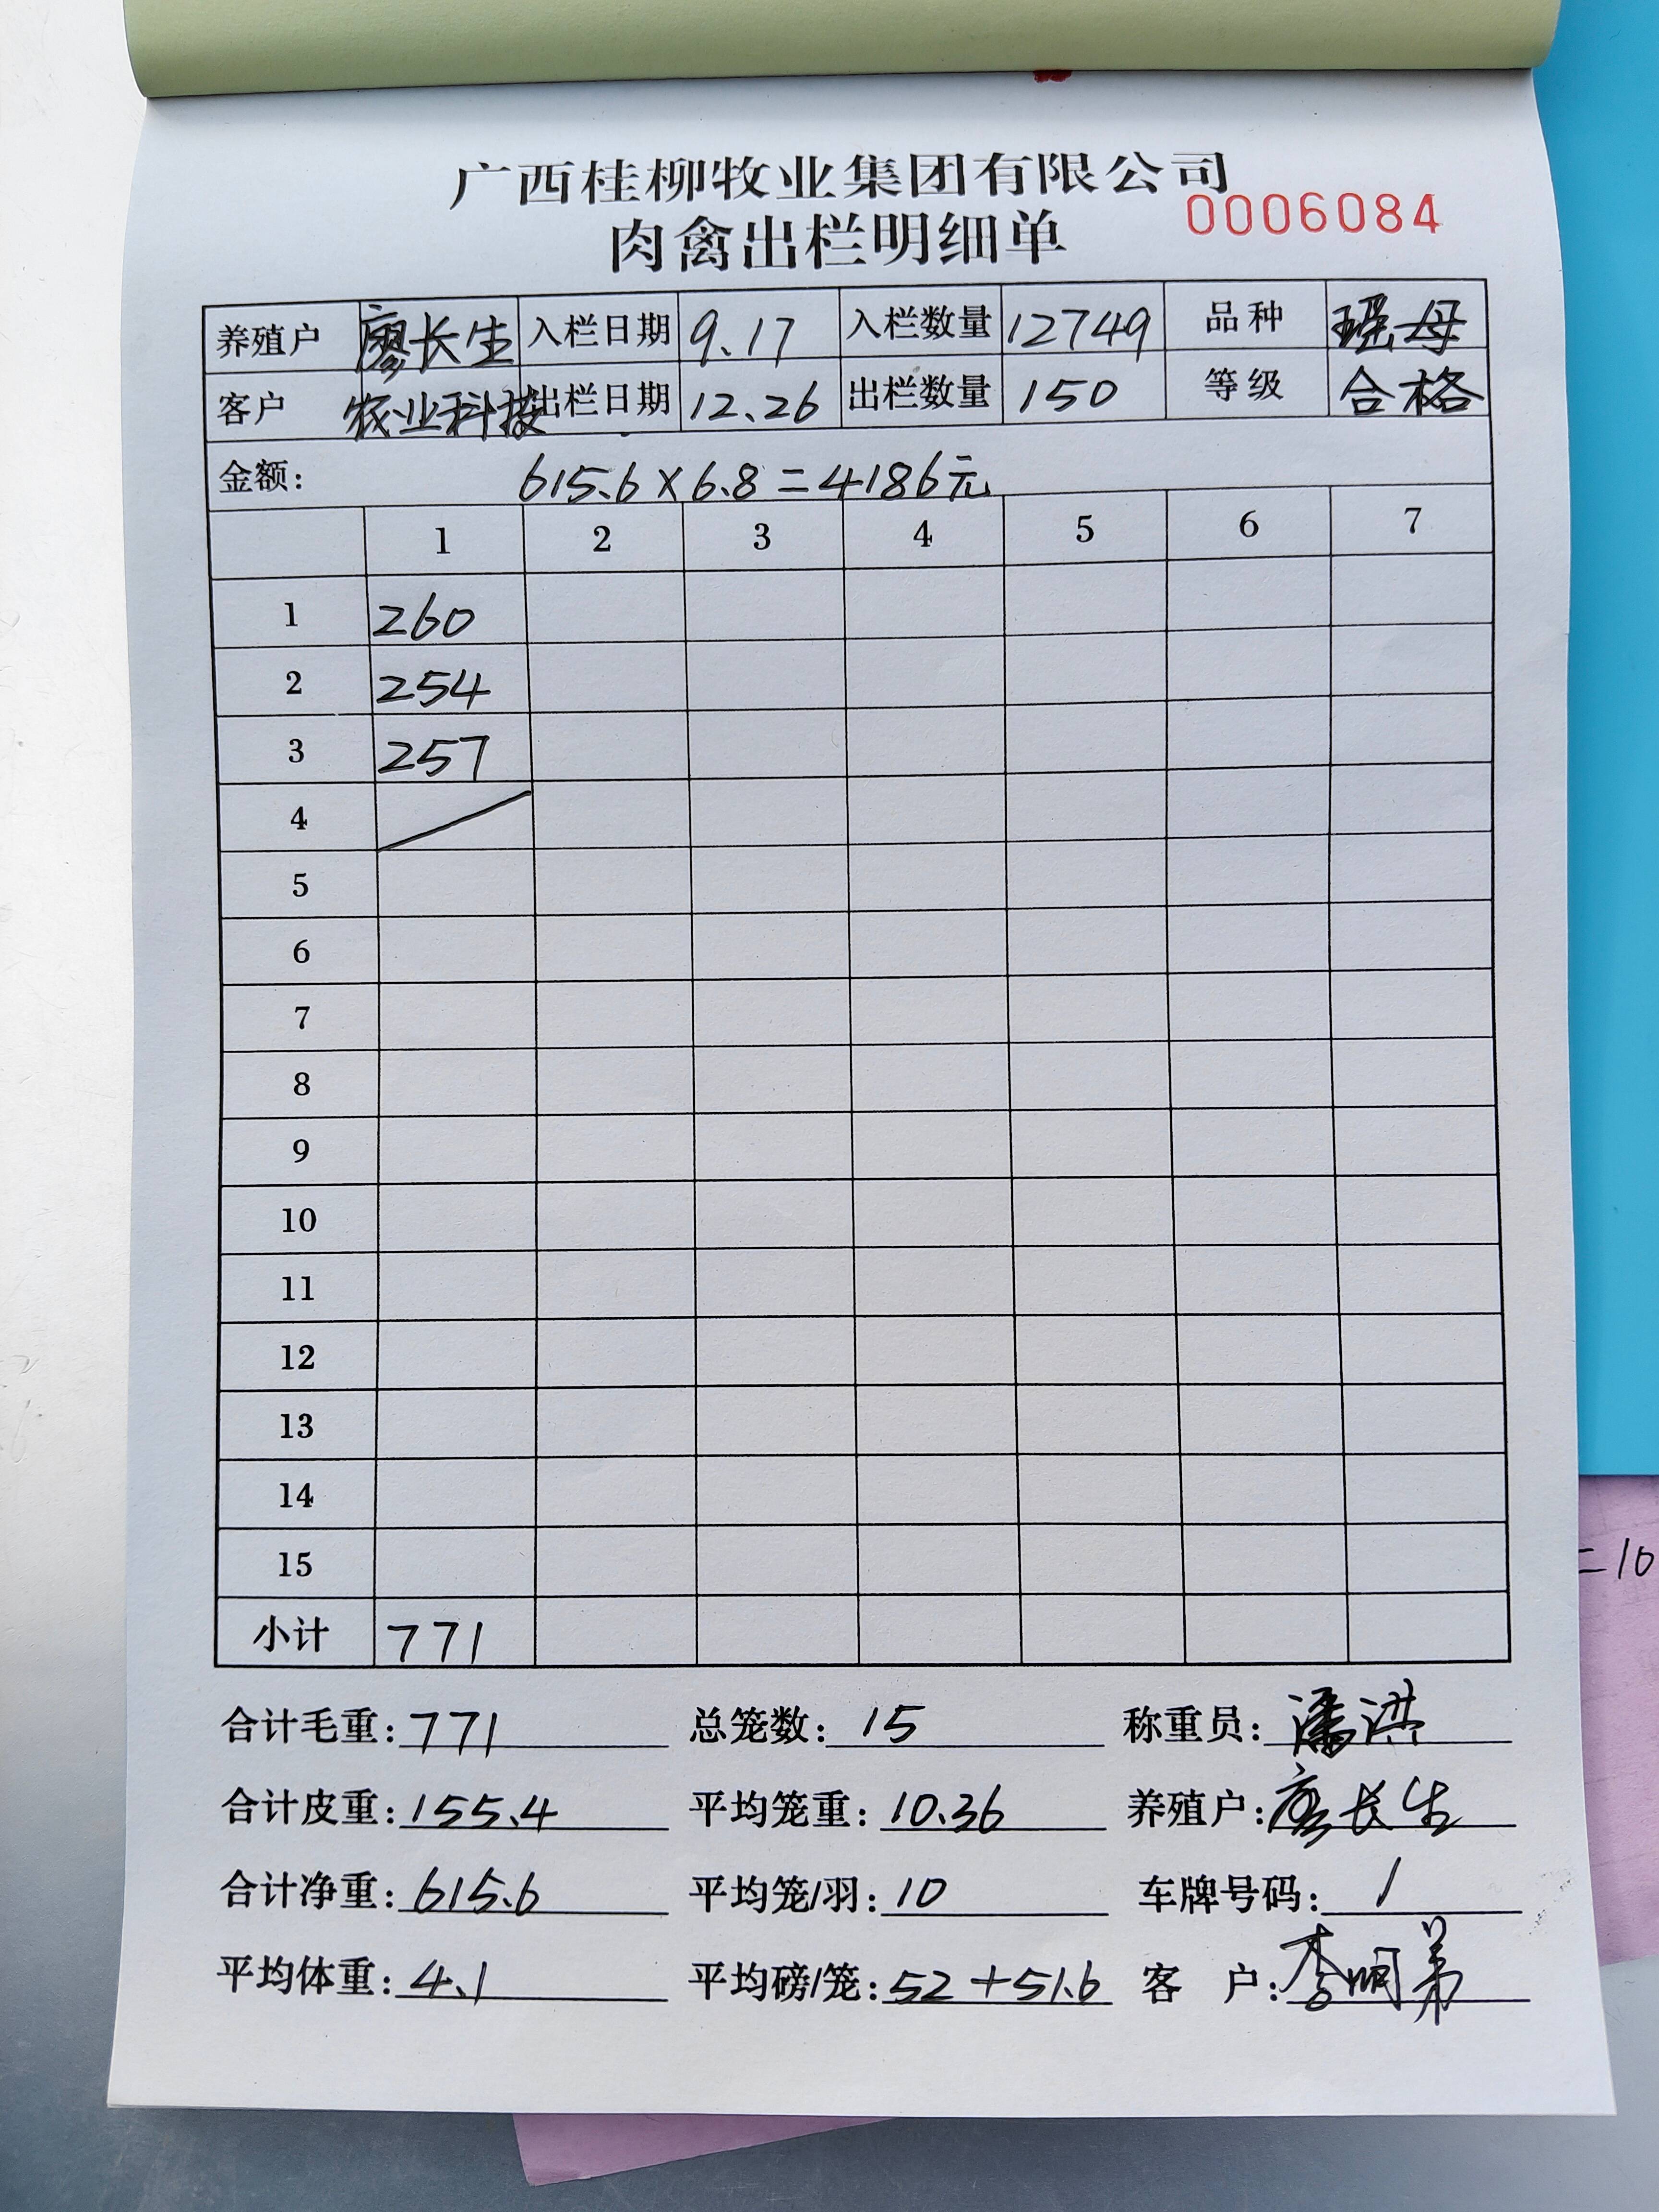 广西桂柳牧业集团有限公司
肉禽出栏明细单 0006084
养殖户 廖长生 入栏日期 9.17 入栏数量 12749 品种 瑶母
客户 农业科技 出栏日期 12.26 出栏数量 150 等级 合格
金额: 615.6×6.8=4186元
1 2 3 4 5 6 7
1 260
2 254
3 257
4
5
6
7
8
9
10
11
12
13
14
15
小计 771
合计毛重: 771 总笼数: 15 称重员: 潘洪
合计皮重: 155.4 平均笼重: 10.36 养殖户: 廖长生
合计净重: 615.6 平均笼/羽: 10 车牌号码: /
平均体重: 4.1 平均磅/笼: 52+51.6 客户: 李明
=10